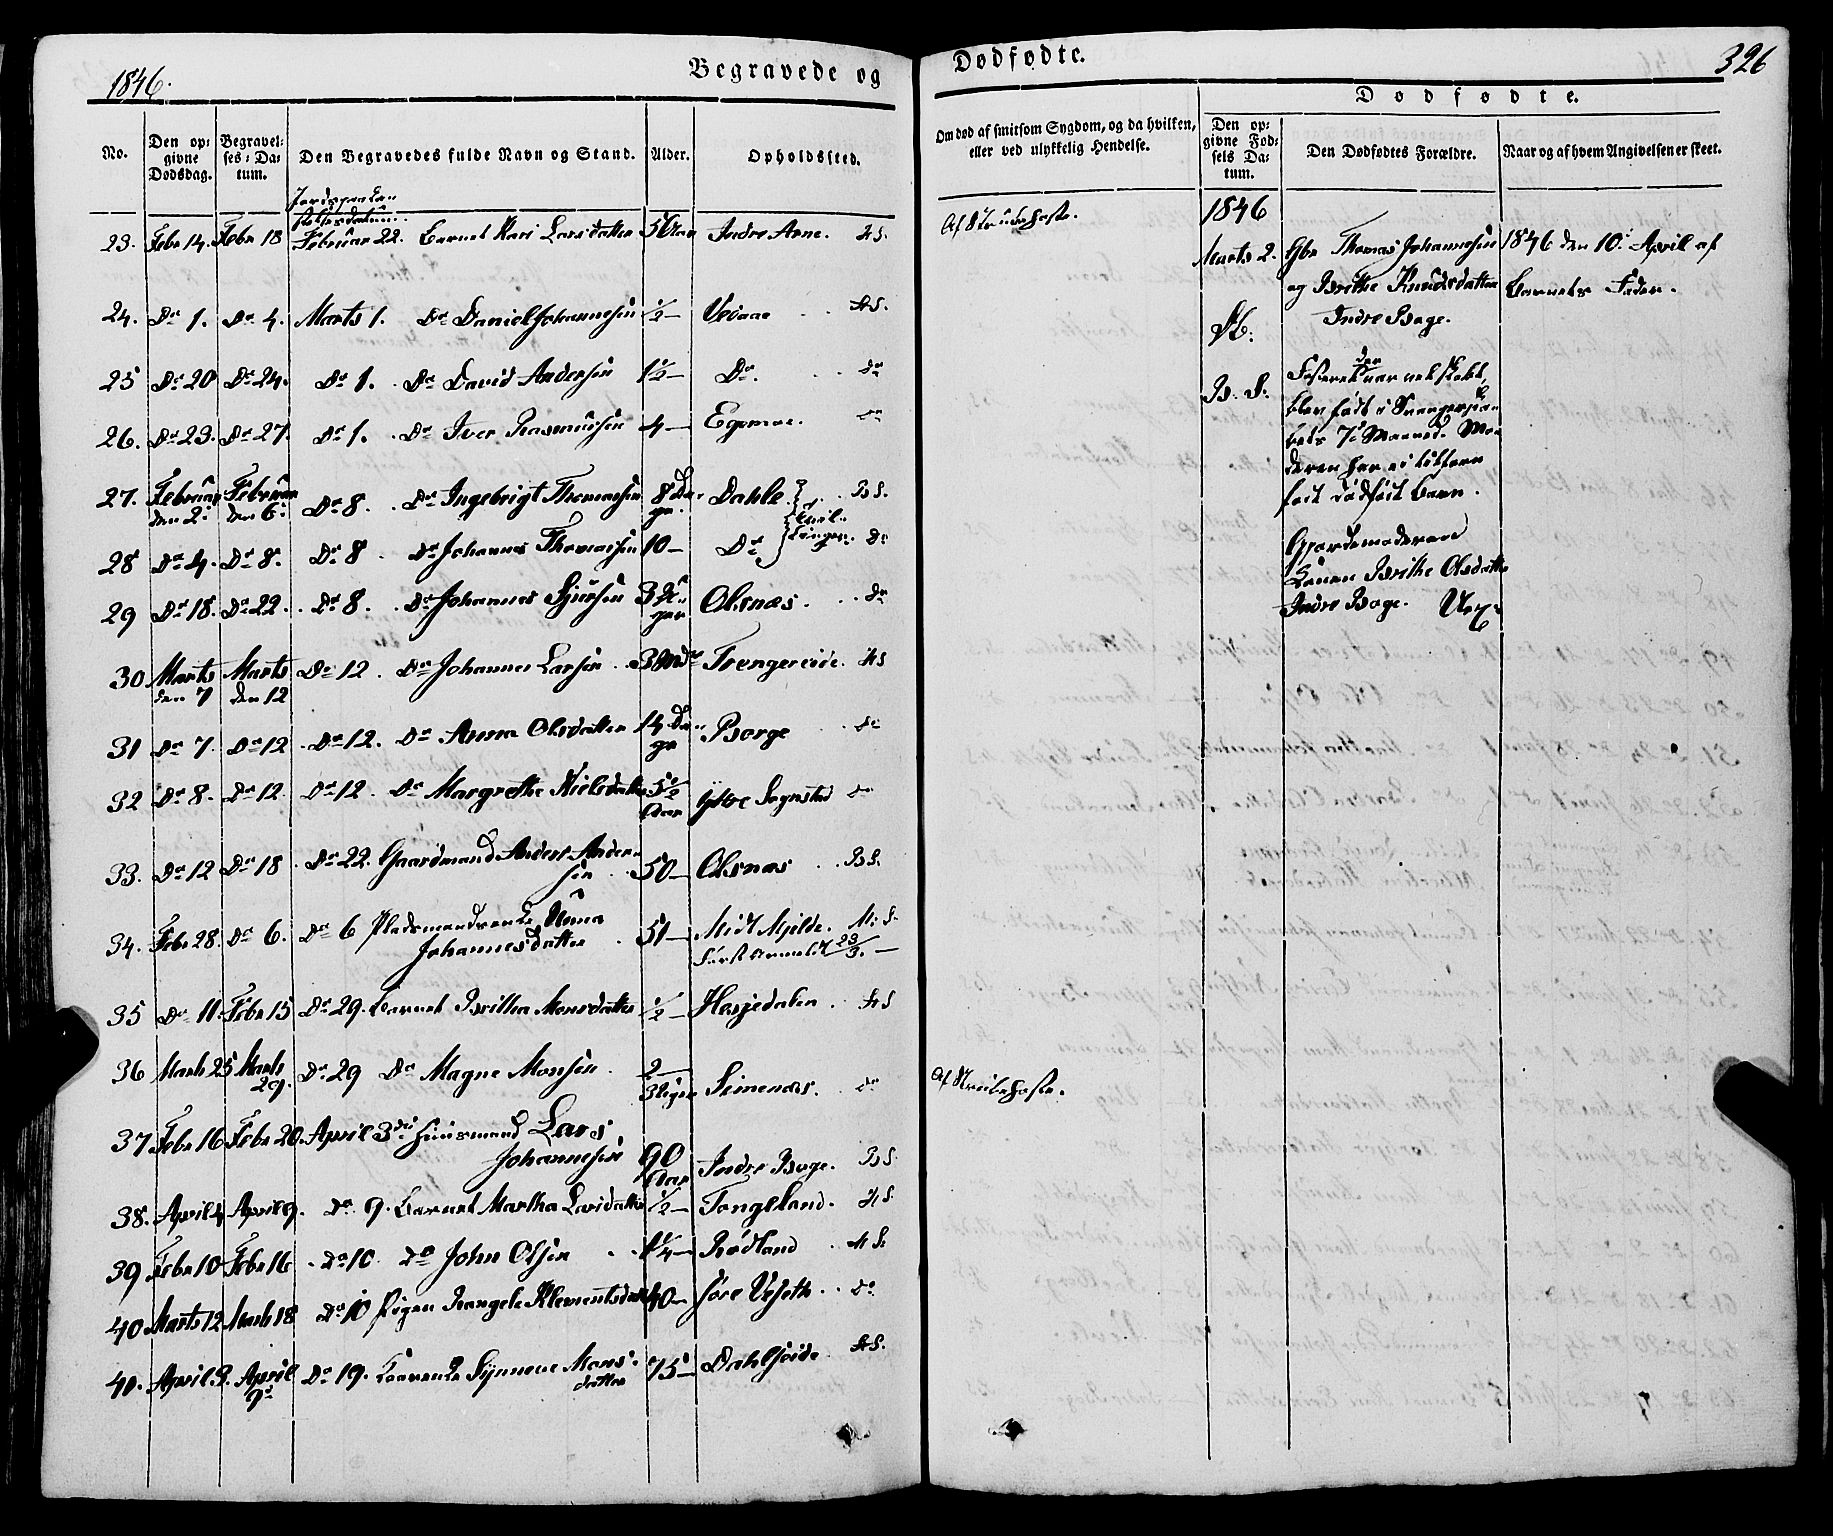 1846.
Begravede og
No.
Den op=
givne
Dødsdag.
Begravel=
ses=Da=
tum.
Den Begravedes fulde Navn og Stand.
Alder.
Opholdssted.
23. Febr 14. Febr 18 Februar 22. Barnet Kari Larsdatter 5 Aar Indre Arne. H S.
24. Do 1. Do 4. Marts 1. Do Daniel Johannesen 1/2 — H S.
25 Do 20 Do 24. Do 1. Do David Andersen 1 1/2 — Do. Do
26. Do 23. Do 27. Do 1. Do Iver Rasmussen 4 — Do
27. Februar Februar Do 8. Do Ingebrigt Thomassen 8 Da= Dahle B S.
den 2. den 6. ge.
28 Do 4. Do 8. Do 8 Do Johannes Thomassen 10 — Do Do
29 Do 18. Do 22. Do 8. Do Johannes Sjursen 3 U= Olsnæs. Do
ger
30 Marts Marts Do 12. Do Johannes Larsen 3 Md. Trengereide. H S
den 7 den 12
31 Do 7. Do 12 Do 12. Do Anna Olsdatter 14 Da= Borge Do
ge
32 Do 8. Do 12. Do 12. Do Margrethe Nielsdatter 5 1/2 Ytre Do
Aar
33. Do 12 Do 18 Do 22. Gaardmand Anders Ander=
sen 50 — Olsnæs B S.
34. Febr 28. Do 6. Do 6 Pladsmandsenke Anna 51 — Midt Mjelde. H S.
Johannesdatter
35 Do 11. Febr 15 Do 29. Barnet Britha Monsdatter 1/2 — Hesjedalen H S
36 Marts 25 Marts Do 29 Do Magne Monsen 2 — Seimenæs. Do
29.
37 Febr 16 Febr 20. April 3die Huusmand Lars
Johannesen 90 Indre Boge. B S.
Aar
38. April 4 April 9. Do 9. Barnet Martha Larsdatter 1/2 — Tongeland. H S.
39 Febr 10 Febr 16 Do 10. Do John Olsen 1/4 — Rødland H S.
40 Marts 12 Marts 18 Do 10 Pigen Klementsdatter 40 — Søre Do
40. April 3. April Do 19. Synneve Mons= 75 — Dahlseide H S.
9d datter
Dødfødte.
326
Om død af smitsom Sygdom, og da hvilken,
eller ved ulykkelig Hendelse.
Dødfødte.
Den op=
givne Fød=
sels Da=
tum.
Den Dødfødtes Forældre.
Naar og af hvem Angivelsen er skeet.
Af Strubehoste.
1846
Marts 2. Gbr Thomas Johannesen 1846 den 10. April af
og Brithe Knudsdatter Barnets Fader.
Indre Boge.
B. S.
Fosteret var
blev født i Svangerska=
bets 7de Maaned. Mo=
deren har ei tilforn
født dødfødt Barn.
Gjordemoderen
Brithe Olsdatter
Indre Boge.
Af Strubehoste.